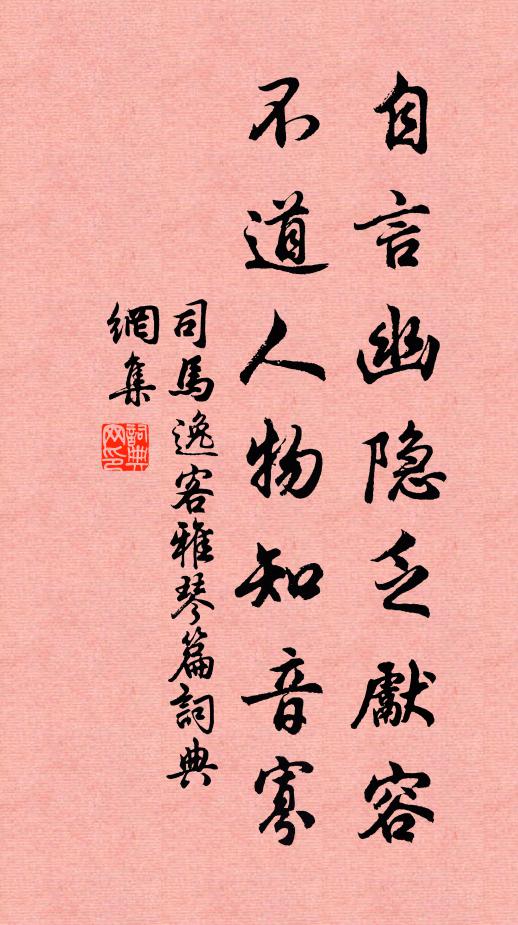 自言幽隐乏獻容
不道人物知音寡
司馬逸客雅琴篇詞典
網集
詞典网印